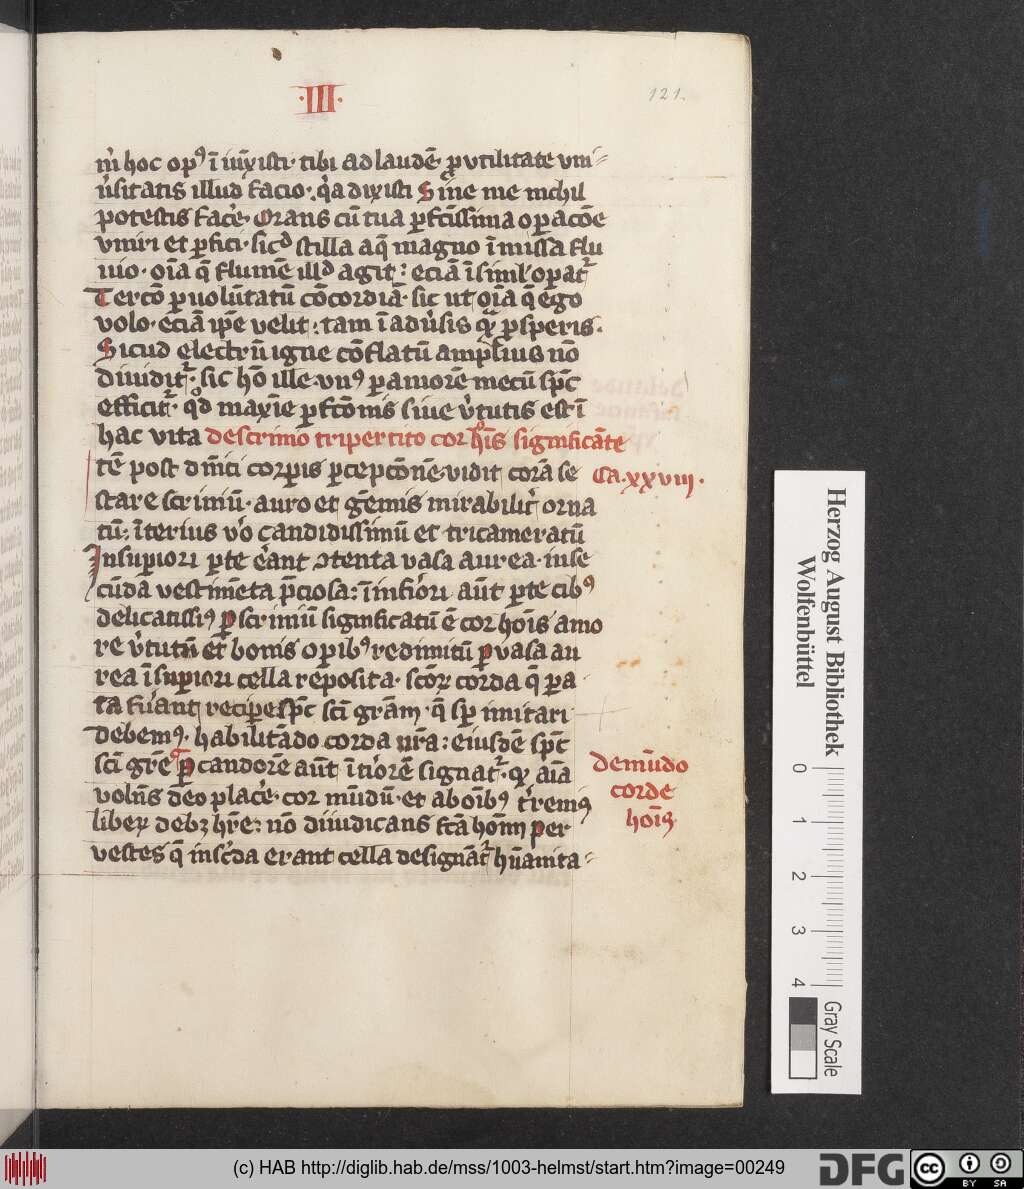 ·III·
121.
m̅ hoc op⁹ ī iūxisti· tibi ad laudē· ꝓ vtilitate vni⸗
ūsitatis illud facio· q̇a dixisti Sine me nichil
potestis facē· Orans cū tua ꝑfc̄issima oꝑacōe
vniri et ꝑfici· sicᵈ stilla aq̄ magno īmissa flu
uio· oīa q̄ flumē illᵈ agit: eciā īsimul oꝑat᷑
Tercō ꝑ uolūtatū cōcordiā· sic ut oīa q̄ ego
volo· eciā ip̄e velit: tam ī adūsis qꝫ ꝓsperis·
Sicud electrū igne cōflatū amplius nō
diuidit᷑· sic hō ille vn⁹ ꝑ amorē mecū sp̄c
efficit᷑· qᵈ maxīe ꝑfc̄ōnis siue v̇tutis est ī
hac vita de scrinio tripertito cor hōīs significāte
Ca·xxviii·
tē post dn̄ici corꝑis ꝑcepc̄ōnē vidit corā se
stare scriniū· auro et gēmis mirabilit̄ orna
tū: īterius v̊o candidissimū et tricameratū
In suꝑiori ꝑte ēant ꝯtenta vasa aurea· in se
cūda vestimēta p̄ciosa: ī infiori aūt ꝑte cib⁹
delicatissi⁹ ꝑ scriniū significatū ē cor hoīs amo
re v̇tutū et bonis oꝑib⁹ redimitū ꝑ vasa au
rea ī suꝑiori cella reposita· sc̄oꝝ corda q̄ ꝑa
ta fūant reciꝑe sp̄c sc̄i grām· q̄ sp̄ imitari
debem⁹· habilitādo corda nr̄a: eiusdē sp̄c
sc̄i gr̄e ꝑ candorē aūt ītiorē signat᷑· qꝫ aīa
voln̄s deo placē· cor mūdū· et ab oīb⁹ t̄renis
liberꝫ debꝫ hr̄e: nō diiudicans fc̄a hoīm per
vestes q̄ in sc̄da erant cella designāt᷑ hūanita⸗
de mūdo
corde
hoīs
Herzog August Bibliothek
Wolfenbüttel
0
1
2
3
4
Gray Scale
(c) HAB http://diglib.hab.de/mss/1003-helmst/start.htm?image=00249
DFG
cc
BY
SA